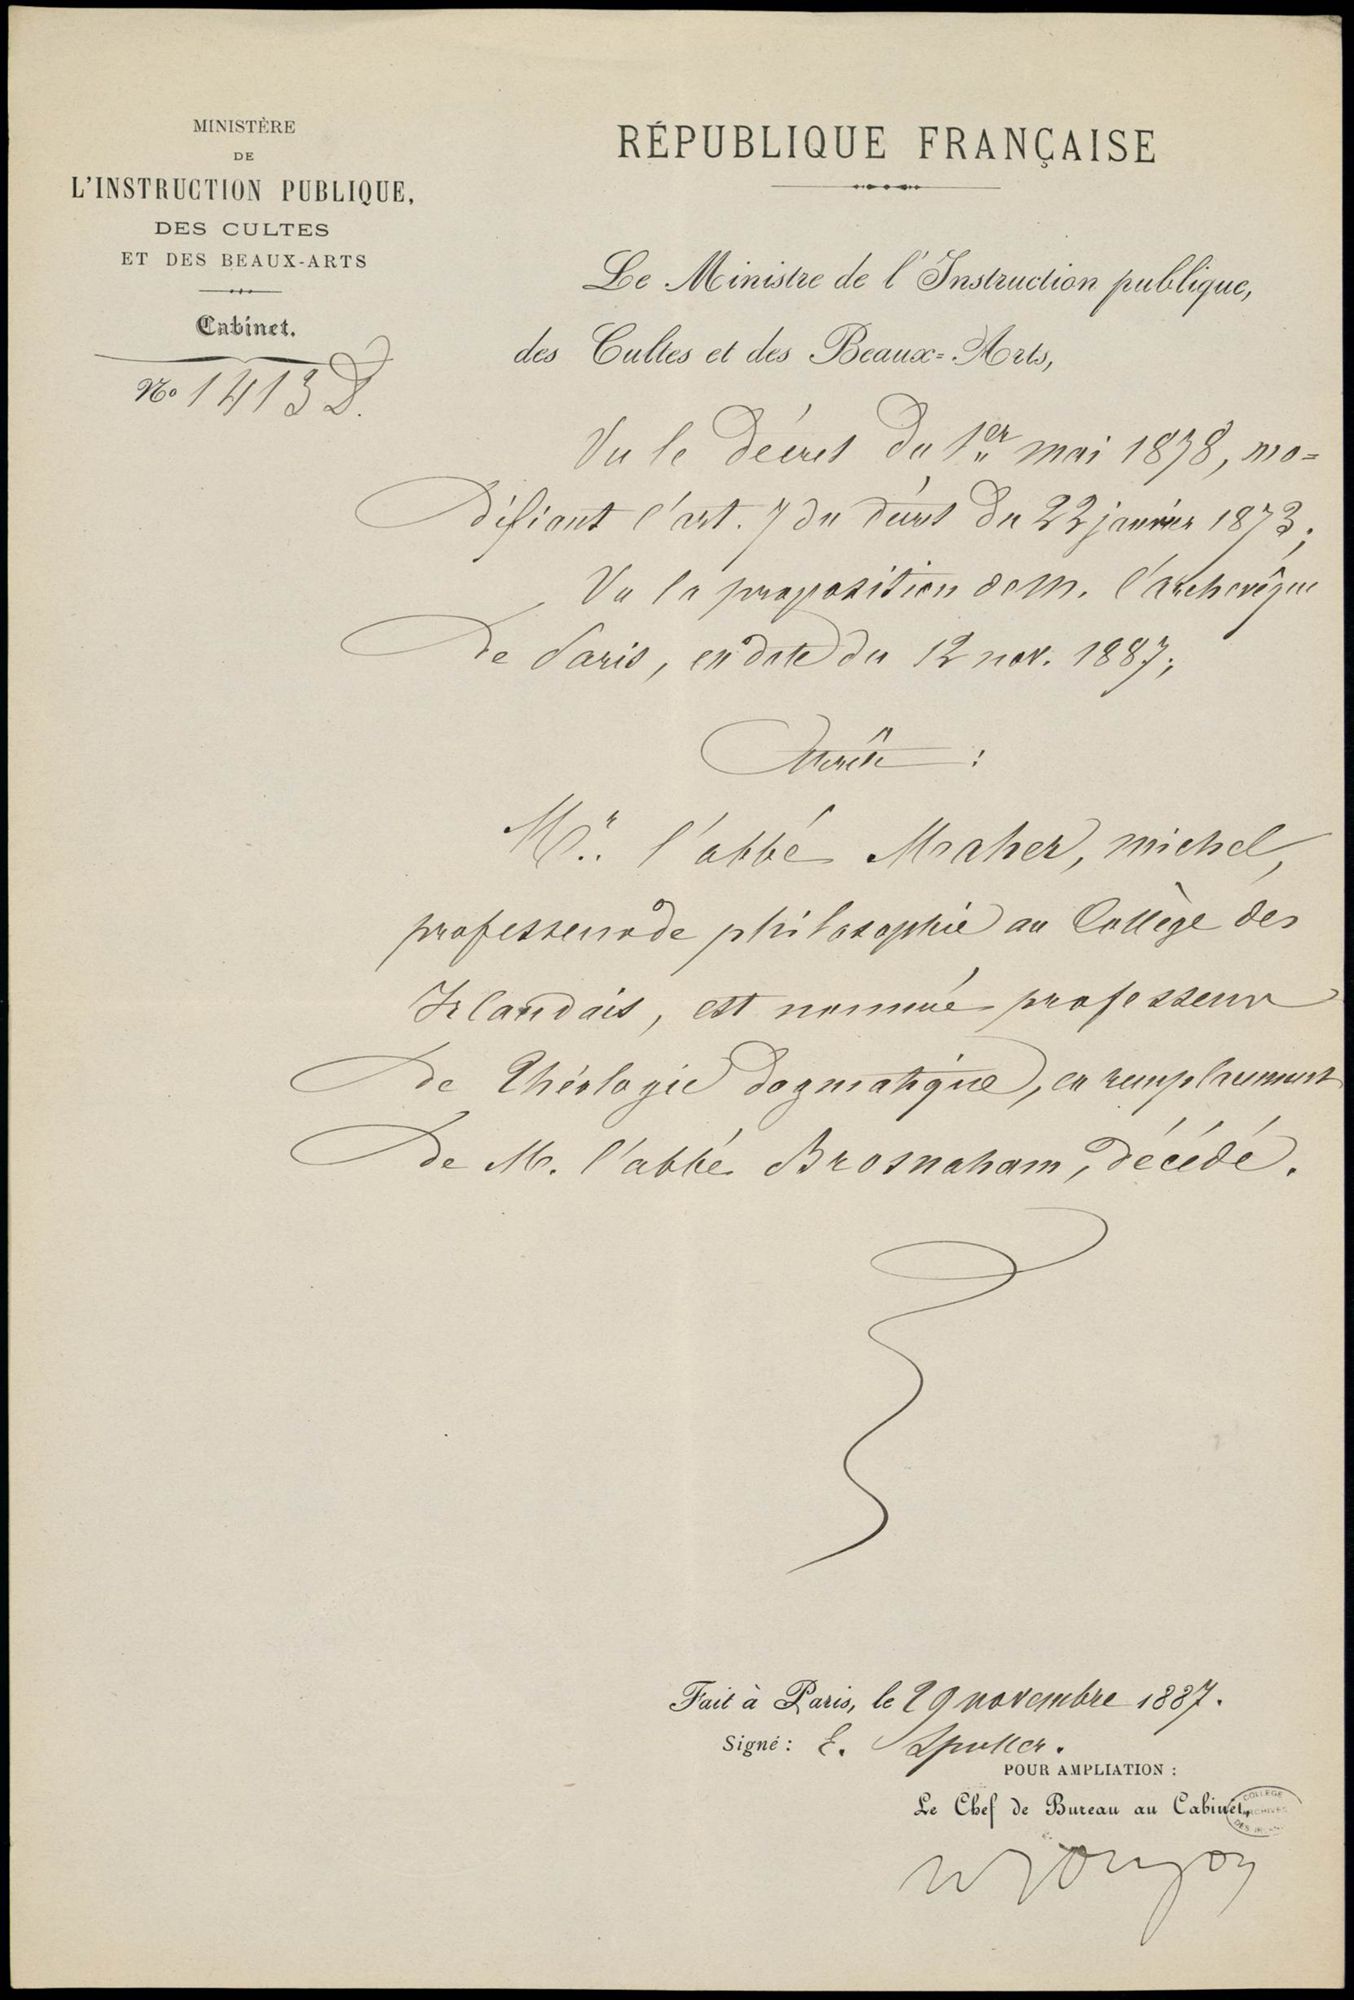 MINISTÈRE
DE
L'INSTRUCTION PUBLIQUE,
DES CULTES
ET DES BEAUX-ARTS
Cabinet.
No 1413 D.
RÉPUBLIQUE FRANÇAISE
Le Ministre de l'Instruction publique,
des Cultes et des Beaux=Arts,
Vu le décret du 1er mai 1878, mo=
difiant l'art. 7 du décret du 22 janvier 1873;
Vu la proposition de M. l'archevêque
de Paris, en date du 12 nov. 1887;
Arrête :
Mr. l'abbé Maher, Michel,
professeur de philosophie au Collège des
Irlandais, est nommé professeur
de Théologie dogmatique, en remplacement
de M. l'abbé Brosnaham, décédé.
Fait à Paris, le 29 novembre 1887.
Signé : E. Spuller.
POUR AMPLIATION :
Le Chef de Bureau au Cabinet,
COLLEGE
ARCHIVES
DES IRLAN